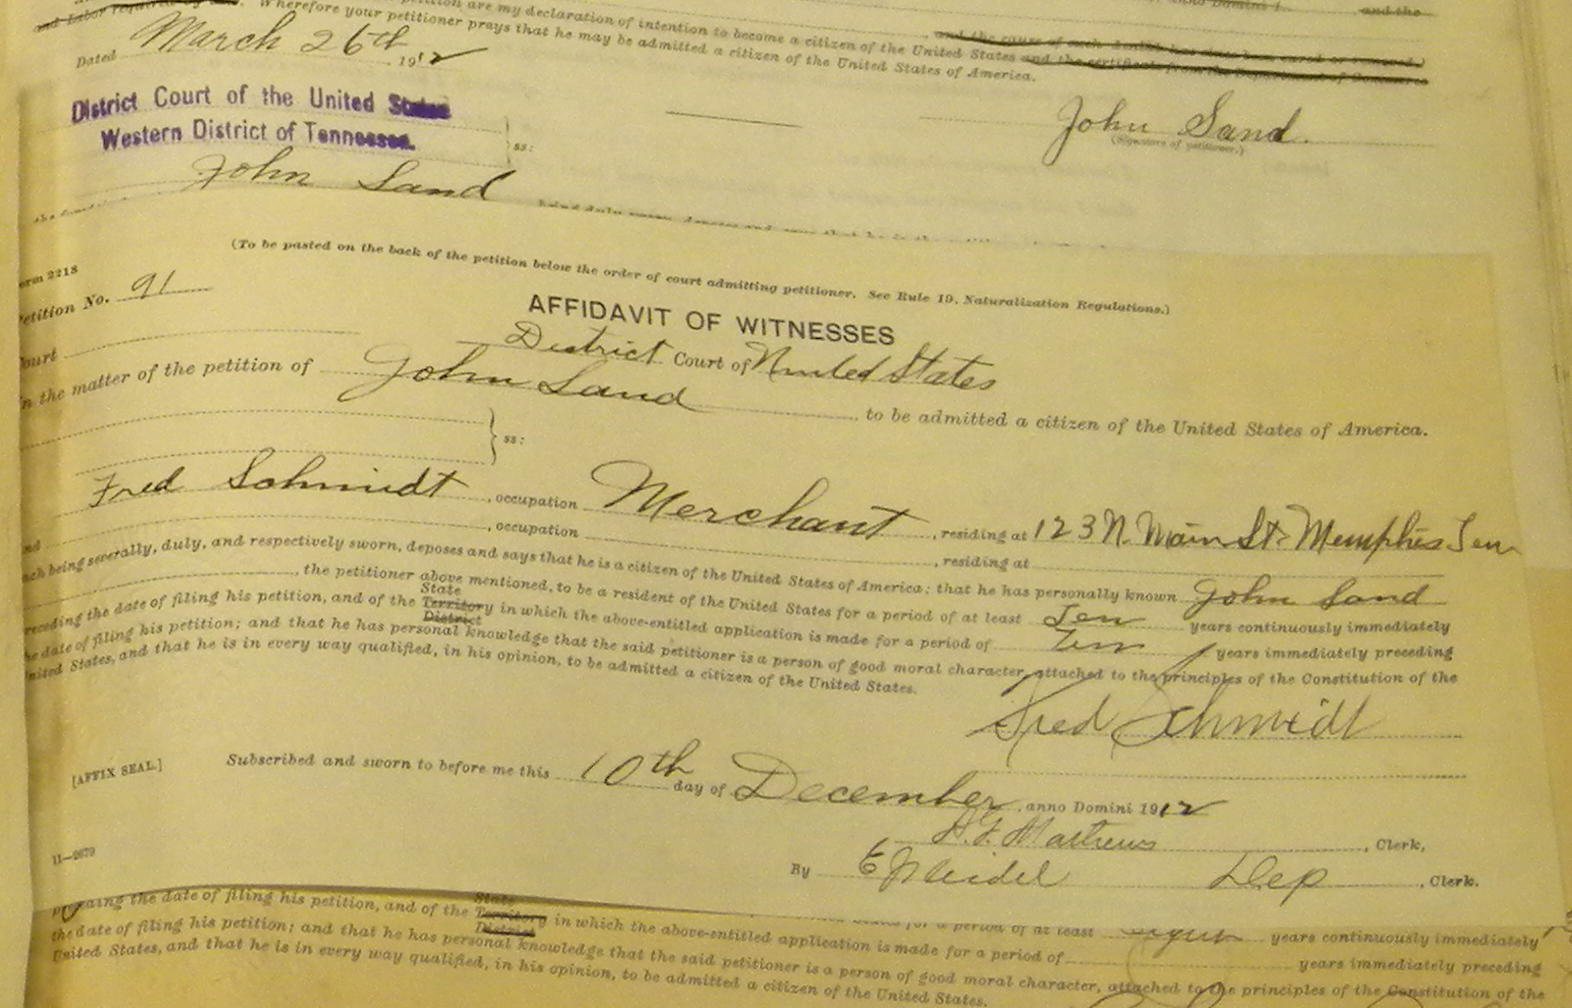 petition are my declaration of intention to become a citizen of the United States and the cause of such denial has since been cured or removed.)
and Labor required by law. Wherefore your petitioner prays that he may be admitted a citizen of the United States of America.
Dated March 26th 1912
District Court of the United States
Western District of Tennessee.
ss:
John Sand
(Signature of petitioner.)
John Sand
(To be pasted on the back of the petition below the order of court admitting petitioner. See Rule 19, Naturalization Regulations.)
orm 2218
Petition No. 91
AFFIDAVIT OF WITNESSES
District Court of United States
ourt
n the matter of the petition of John Sand to be admitted a citizen of the United States of America.
ss:
Fred Schmidt, occupation Merchant, residing at 123 N. Main St. Memphis Ten
nd , occupation , residing at
ach being severally, duly, and respectively sworn, deposes and says that he is a citizen of the United States of America; that he has personally known John Sand
, the petitioner above mentioned, to be a resident of the United States for a period of at least Ten years continuously immediately
receding the date of filing his petition, and of the State Territory District in which the above-entitled application is made for a period of Ten years immediately preceding
he date of filing his petition; and that he has personal knowledge that the said petitioner is a person of good moral character, attached to the principles of the Constitution of the
United States, and that he is in every way qualified, in his opinion, to be admitted a citizen of the United States.
Fred Schmidt
[AFFIX SEAL.]
Subscribed and sworn to before me this 10th day of December, anno Domini 1912
Mathews, Clerk,
11—2679
By Dep, Clerk.
the date of filing his petition, and of the State Territory District in which the above-entitled application is made for a period of at least years continuously immediately
the date of filing his petition; and that he has personal knowledge that the said petitioner is a person of good moral character, attached to the principles of the Constitution of the
years immediately preceding
United States, and that he is in every way qualified, in his opinion, to be admitted a citizen of the United States.